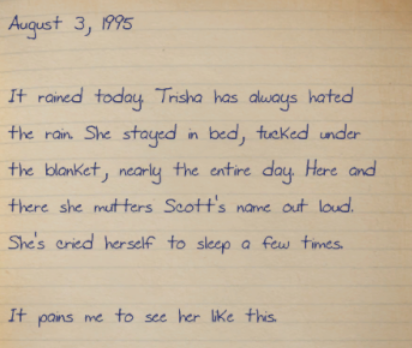 August 3, 1995
It rained today. Trisha has always hated
the rain. She stayed in bed, tucked under
the blanket, nearly the entire day. Here and
there she mutters Scott's name out loud.
She's cried herself to sleep a few times.
It pains me to see her like this.